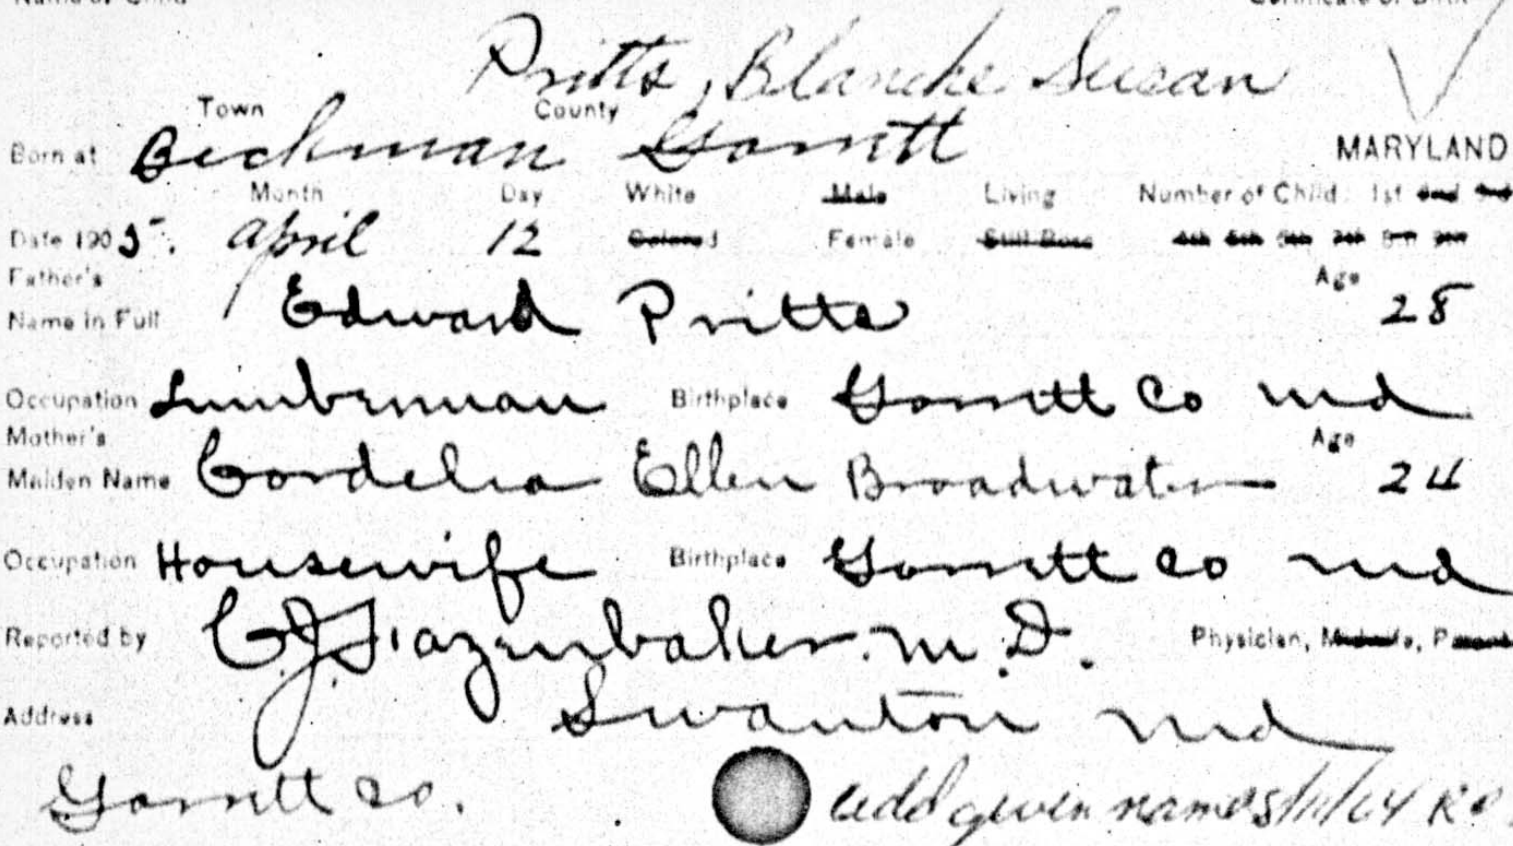 Name of Child Certificate of Birth
Pritts, Blanche Susan
Town County
Born at Beckman Garrett MARYLAND
Month Day White Male Living Number of Child: 1st 2nd 3rd
Date 1905. April 12 Colored Female Still Born 4th 5th 6th 7th 8th 9th
Father's Age
Name in Full Edward Pritts 28
Occupation Lumberman Birthplace Garrett Co Md
Mother's Age
Maiden Name Cordelia Ellen Broadwater 24
Occupation Housewife Birthplace Garrett Co Md
Reported by C. J. Hazenbaker. M. D. Physician, Midwife, Parent
Address Swanton Md
Garrett Co.
add given names /11/64